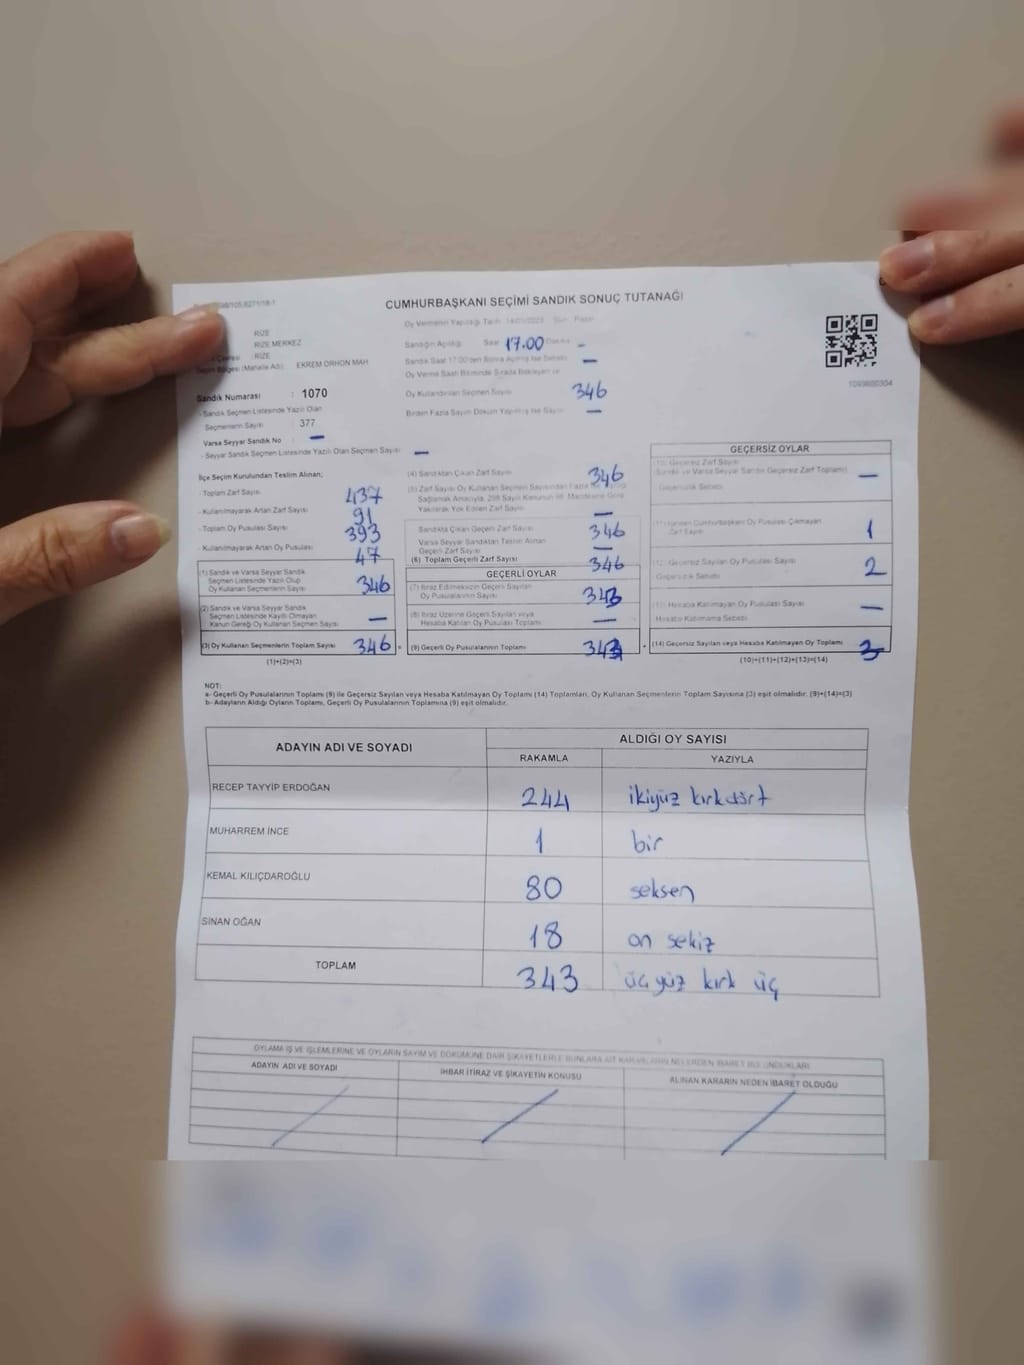 CUMHURBAŞKANI SEÇİMİ SANDIK SONUÇ TUTANAĞI
RİZE
RİZE MERKEZ
RİZE
(Mahalle Adı) EKREM ORHON MAH
Oy Vermenin Yapıldığı Tarih
Sandığın Açıldığı Saat 17.00 Dakika -
Sandık Saat 17:00'den Sonra Açılmış İse Sebebi —
Oy Verme Saati Bitiminde Sırada Bekleyen ve
Oy Kullandırılan Seçmen Sayısı 346
Birden Fazla Sayım Döküm Yapılmış İse Sayısı —
1099800304
Sandık Numarası : 1070
- Sandık Seçmen Listesinde Yazılı Olan
Seçmenlerin Sayısı 377
Varsa Seyyar Sandık No : —
- Seyyar Sandık Seçmen Listesinde Yazılı Olan Seçmen Sayısı —
İlçe Seçim Kurulundan Teslim Alınan;
- Toplam Zarf Sayısı 437
- Kullanılmayarak Artan Zarf Sayısı 91
- Toplam Oy Pusulası Sayısı 393
- Kullanılmayarak Artan Oy Pusulası 47
(1) Sandık ve Varsa Seyyar Sandık
Seçmen Listesinde Yazılı Olup
Oy Kullanan Seçmenlerin Sayısı 346
(2) Sandık ve Varsa Seyyar Sandık
Seçmen Listesinde Kayıtlı Olmayan
Kanun Gereği Oy Kullanan Seçmen Sayısı —
(3) Oy Kullanan Seçmenlerin Toplam Sayısı 346 =
(1)+(2)=(3)
(4) Sandıktan Çıkan Zarf Sayısı 346
(5) Zarf Sayısı Oy Kullanan Seçmen Sayısından Fazla
Sağlamak Amacıyla, 298 Sayılı Kanunun 98. Maddesine Göre
Yakılarak Yok Edilen Zarf Sayısı —
Sandıkta Çıkan Geçerli Zarf Sayısı 346
Varsa Seyyar Sandıktan Teslim Alınan
Geçerli Zarf Sayısı —
(6) Toplam Geçerli Zarf Sayısı 346
GEÇERLİ OYLAR
(7) İtiraz Edilmeksizin Geçerli Sayılan
Oy Pusulalarının Sayısı 343
(8) İtiraz Üzerine Geçerli Sayılan veya
Hesaba Katılan Oy Pusulası Toplamı —
(9) Geçerli Oy Pusulalarının Toplamı 343 +
GEÇERSİZ OYLAR
(10) Geçersiz Zarf Sayısı
(Sandık ve Varsa Seyyar Sandık Geçersiz Zarf Toplamı) —
Geçersizlik Sebebi:
(11) İçinden Cumhurbaşkanı Oy Pusulası Çıkmayan
Zarf Sayısı 1
(12) Geçersiz Sayılan Oy Pusulası Sayısı 2
Geçersizlik Sebebi:
(13) Hesaba Katılmayan Oy Pusulası Sayısı —
Hesaba Katılmama Sebebi:
(14) Geçersiz Sayılan veya Hesaba Katılmayan Oy Toplamı 3
(10)+(11)+(12)+(13)=(14)
NOT:
a- Geçerli Oy Pusulalarının Toplamı (9) ile Geçersiz Sayılan veya Hesaba Katılmayan Oy Toplamı (14) Toplamları, Oy Kullanan Seçmenlerin Toplam Sayısına (3) eşit olmalıdır. (9)+(14)=(3)
b- Adayların Aldığı Oyların Toplamı, Geçerli Oy Pusulalarının Toplamına (9) eşit olmalıdır.
ADAYIN ADI VE SOYADI ALDIĞI OY SAYISI
RAKAMLA YAZIYLA
RECEP TAYYİP ERDOĞAN 244 ikiyüz kırkdört
MUHARREM İNCE 1 bir
KEMAL KILIÇDAROĞLU 80 seksen
SİNAN OĞAN 18 on sekiz
TOPLAM 343 üçyüz kırk üç
OYLAMA İŞ VE İŞLEMLERİNE VE OYLARIN SAYIM VE DÖKÜMÜNE DAİR ŞİKAYETLERLE BUNLARA AİT KARARLARIN NELERDEN İBARET BULUNDUKLARI
ADAYIN ADI VE SOYADI İHBAR İTİRAZ VE ŞİKAYETİN KONUSU ALINAN KARARIN NEDEN İBARET OLDUĞU